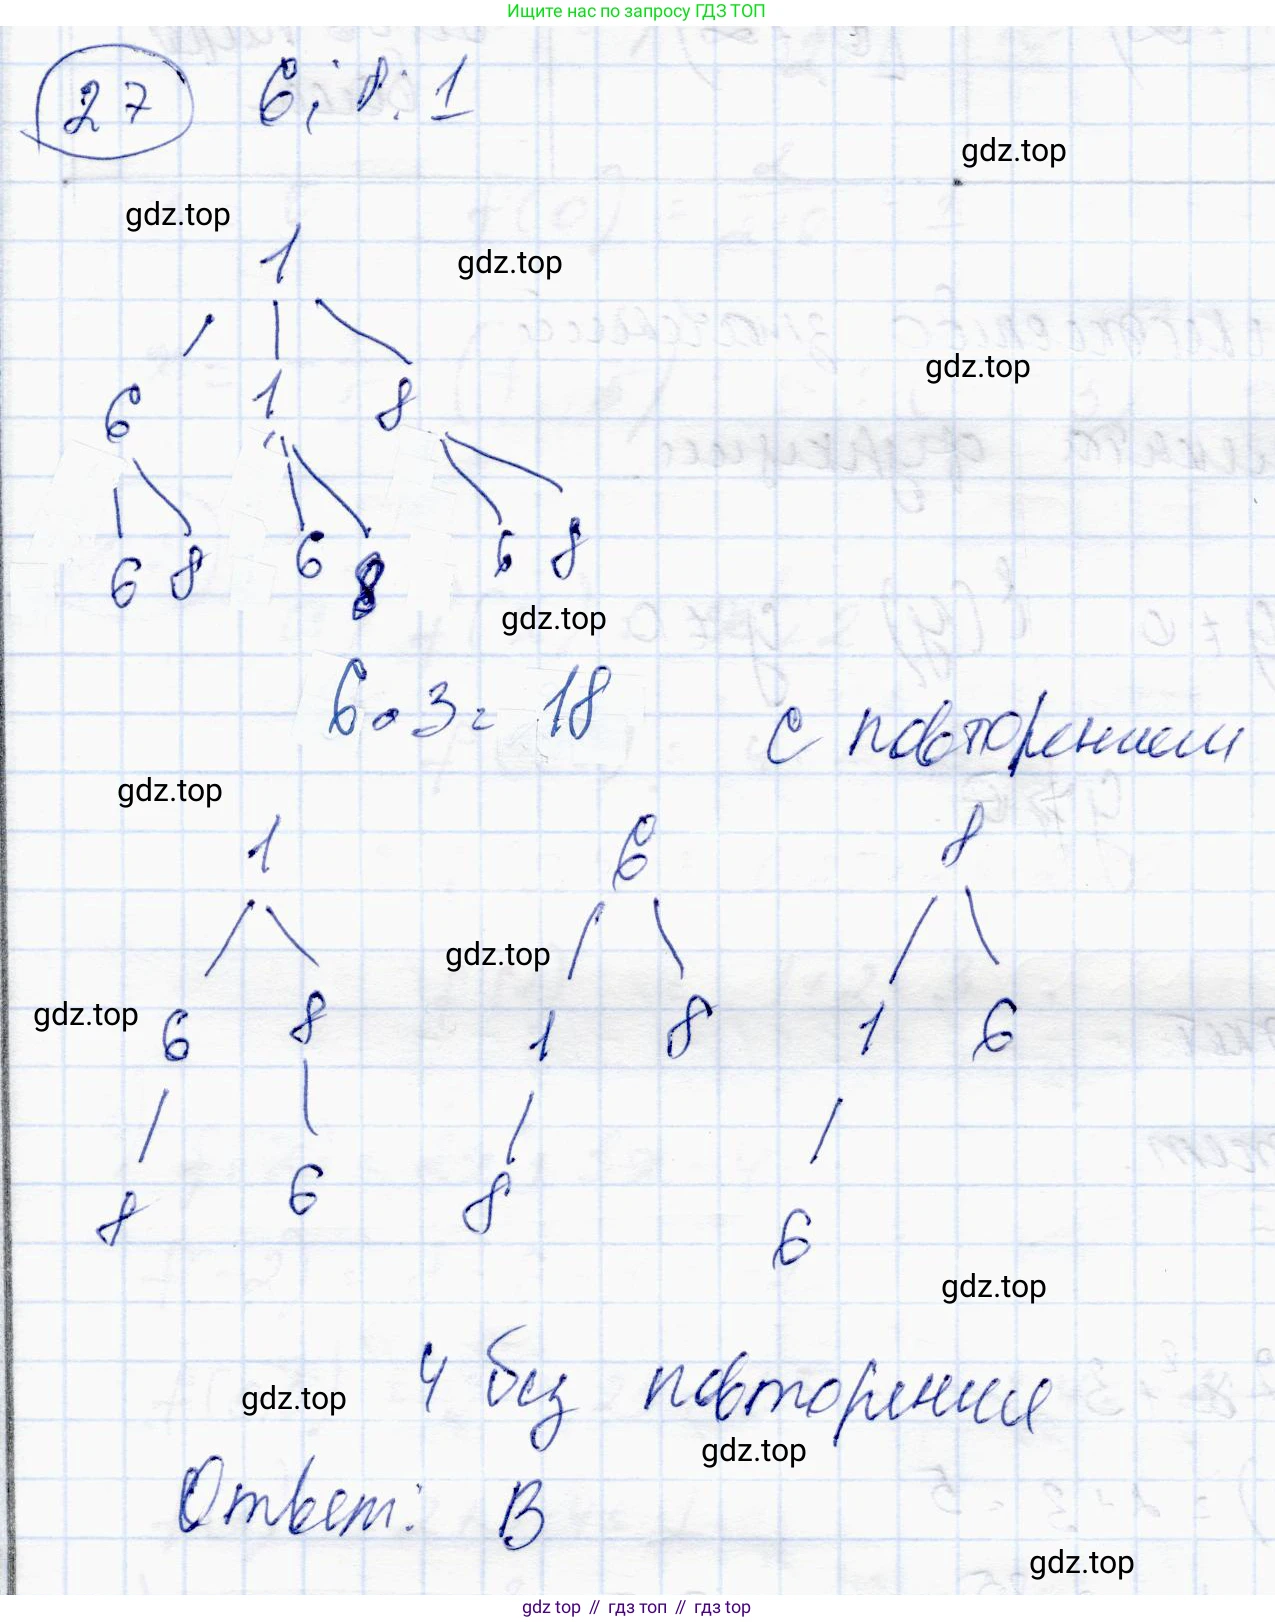 Ищите нас по запросу ГДЗ ТОП
27 6; 8; 1
gdz.top
gdz.top
1
gdz.top
gdz.top
6 1 8
6 8 6 8 6 8
gdz.top
6 • 3 = 18
с повторением
gdz.top
1 6 8
gdz.top
6 8 1 8 1 6
gdz.top
8 6 8 6
gdz.top
4 без повторения
gdz.top
gdz.top
Ответ: В
gdz.top
gdz top // гдз топ // gdz top